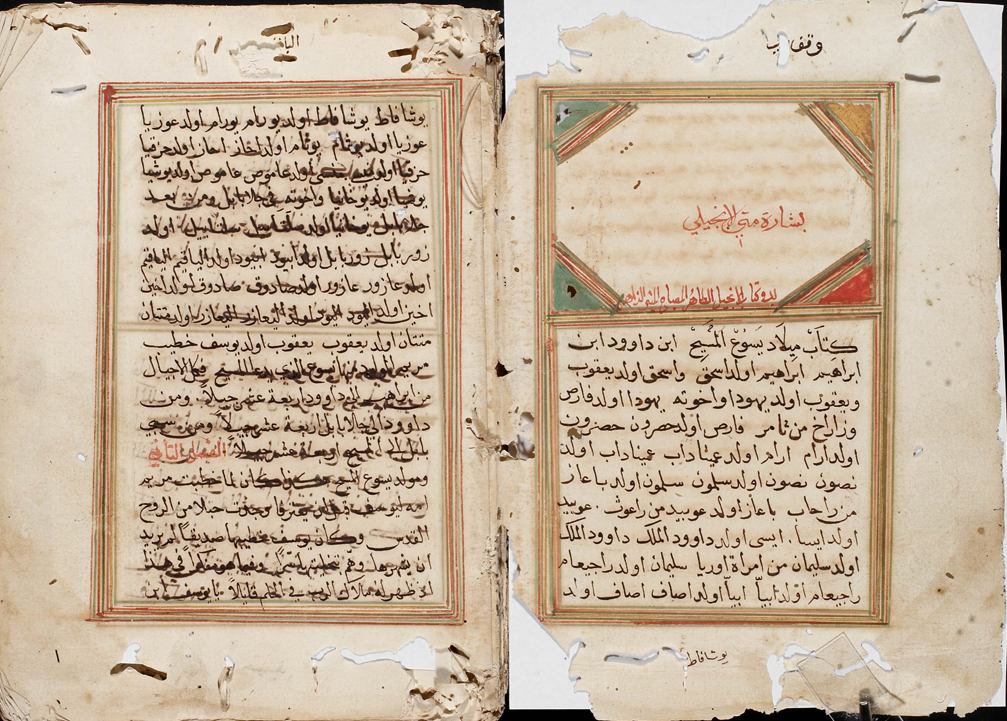 وقف
بشارة متي الانجيلي
كتاب ميلاد يسوع المسيح ابن داوود ابن
ابراهيم ابراهيم اولد اسحق واسحق اولد يعقوب
ويعقوب اولد يهودا واخوته يهودا اولد فارص
وزارخ من ثامر فارص اولد حصرون حصرون
اولد ارام ارام اولد عميناداب عميناداب اولد
نصون نصون اولد سلمون سلمون اولد باعاز
من راحاب باعاز اولد عوبيد من راعوث عوبيد
اولد ايسا ايسى اولد داوود الملك داوود الملك
اولد سليمان من امراة اوريا سلمان اولد راجيعام
راجيعام اولد ابيا ابيا اولد اصاف اصاف اولد
يوشافاط
يوشافاط يوشافاط اولد يورام يورام اولد عوزيا
عوزيا اولد يوثام يوثام اولد احاز احاز اولد حزقيا
حزقيا اولد اولد عاموص عاموص اولد يوشيا
يوشيا اولد يوخانيا واخوته في جلا بابل ومن بعد
زوربابل زوربابل اولد ابيود ابيود اولد الياقيم الياقيم
اولد عازور عازور اولد صادوق صادوق اولد اخين
اخين اولد اليود اليود اولد اليعازر اليعازر اولد متثان
متثان اولد يعقوب يعقوب اولد يوسف خطيب
مريم يسوع الذي يدعا المسيح فكل الاجيال
من ابراهيم الى داوود اربعة عشر جيلا ومن
داوود الى جلا بابل اربعة عشر جيلا ومن سبي
بابل الى المسيح اربعة عشر جيلا الفصل الثاني
ومولد يسوع المسيح هكذا كان لما خطبت مريم
امه ليوسف قبل ان يفترقا وجدت حبلا من الروح
القدس وكان يوسف خطيبها صديقا لم يريد
ان يشهرها وهم بتخليتها سرا وفيما هو متفكرا في هذا
اذ ظهر له ملاك الرب في الحلم قايلا يا يوسف ابن